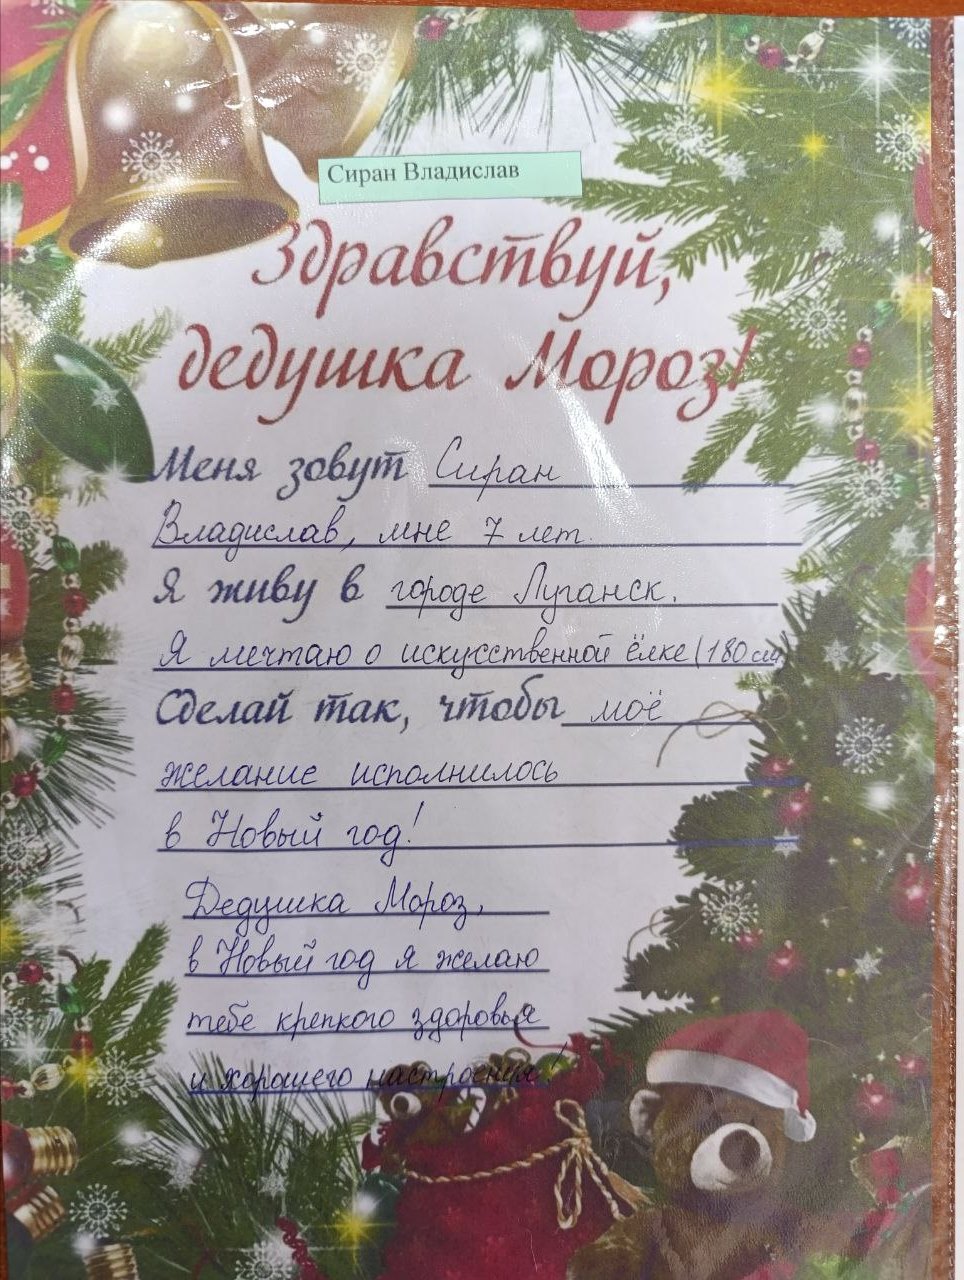 Сиран Владислав
Здравствуй,
дедушка Мороз!
Меня зовут Сиран
Владислав, мне 7 лет.
Я живу в городе Луганск.
Я мечтаю о искусственной ёлке (180 см)
Сделай так, чтобы моё
желание исполнилось
в Новый год!
Дедушка Мороз,
в Новый год я желаю
тебе крепкого здоровья
и хорошего настроения!